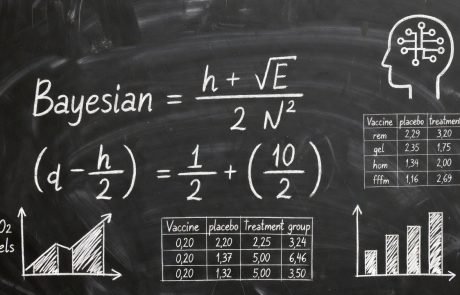 Bayesian = h + √E / 2 N²
(d - h/2) = 1/2 + (10/2)
Vaccine placebo treatment
rem 2,29 3,20
gel 2.35 1,75
hom 1,34 2,00
fffm 1,16 2,69
O₂
els
Vaccine placebo Treatment group
0,20 2,20 2,25 3,24
0,20 1,37 5,00 6,46
0,20 1,32 5,00 3,50